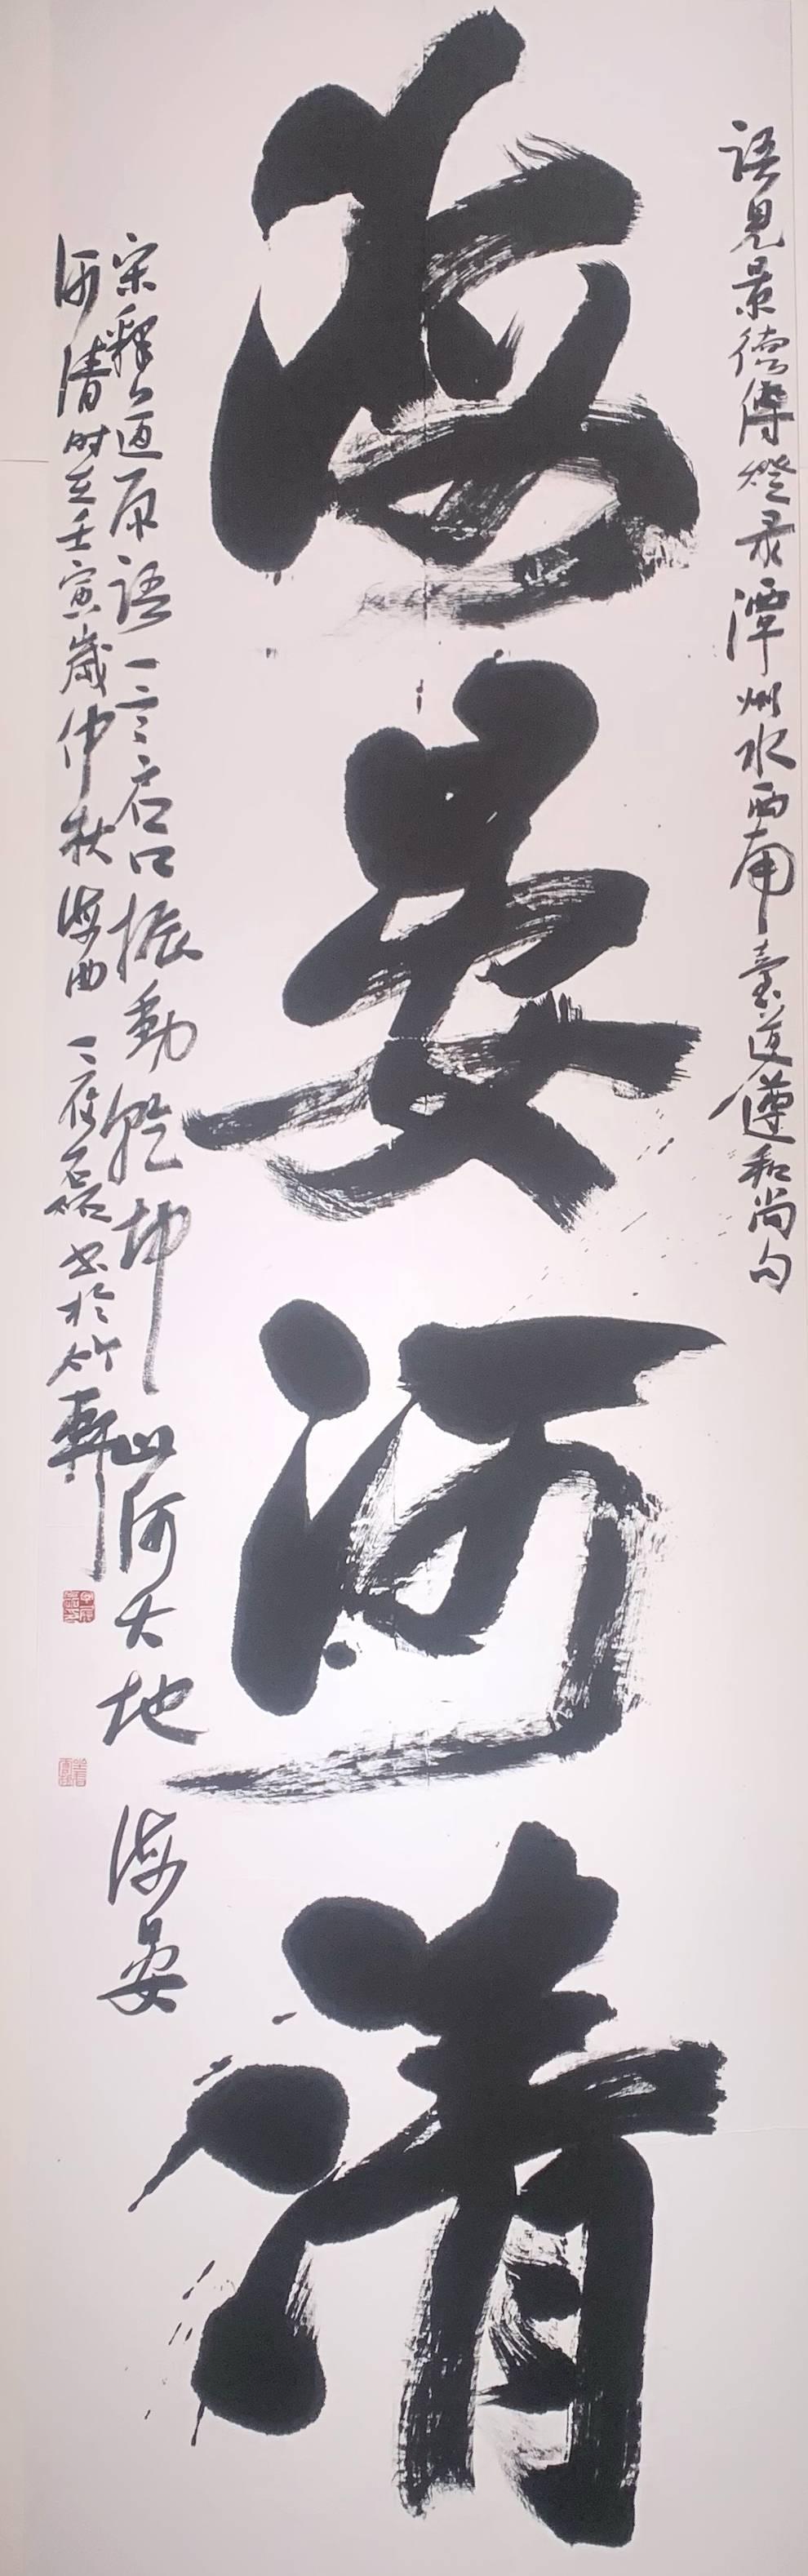 海晏河清
語見景德傳燈录潭州水西南臺道遵和尚句
宋釋道原語一言启口振動乾坤山河大地海晏
河清時在壬寅歲仲秋海西一石磊书於竹軒